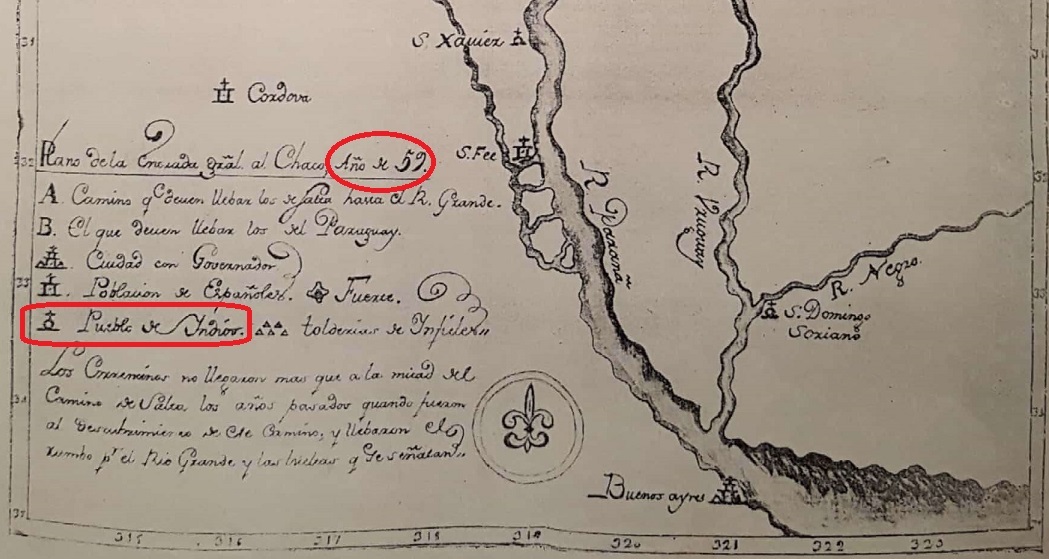 31
S. Xavier
Cordova
32 Plano de la Entrada gral. al Chaco, Año de 59.
S. Fee
A. Camino q^e deven llebar los de Salta hasta el R. Grande.
B. El que deven llebar los del Paraguay.
Ciudad con Governador
33
Poblacion de Españoles. Fuerte.
Pueblo de Yndios. tolderias de Infieles
Los Correntinos no llegaron mas que a la mitad del
34
Camino de Salta, los años pasados quando fueron
al descubrimiento de este Camino, y llebaron el
rumbo p^r el Rio Grande y las trichas q^e se señalan
R. Parana
R. Vruguay
R. Negro.
S. Domingo
Soriano
Buenos ayres
315 316 317 318 319 320 321 322 323